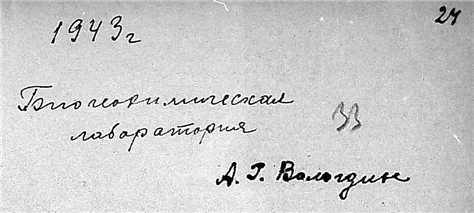 24
1943 г
Биогеохимическая
лаборатория
33
А. Г. Вологдин